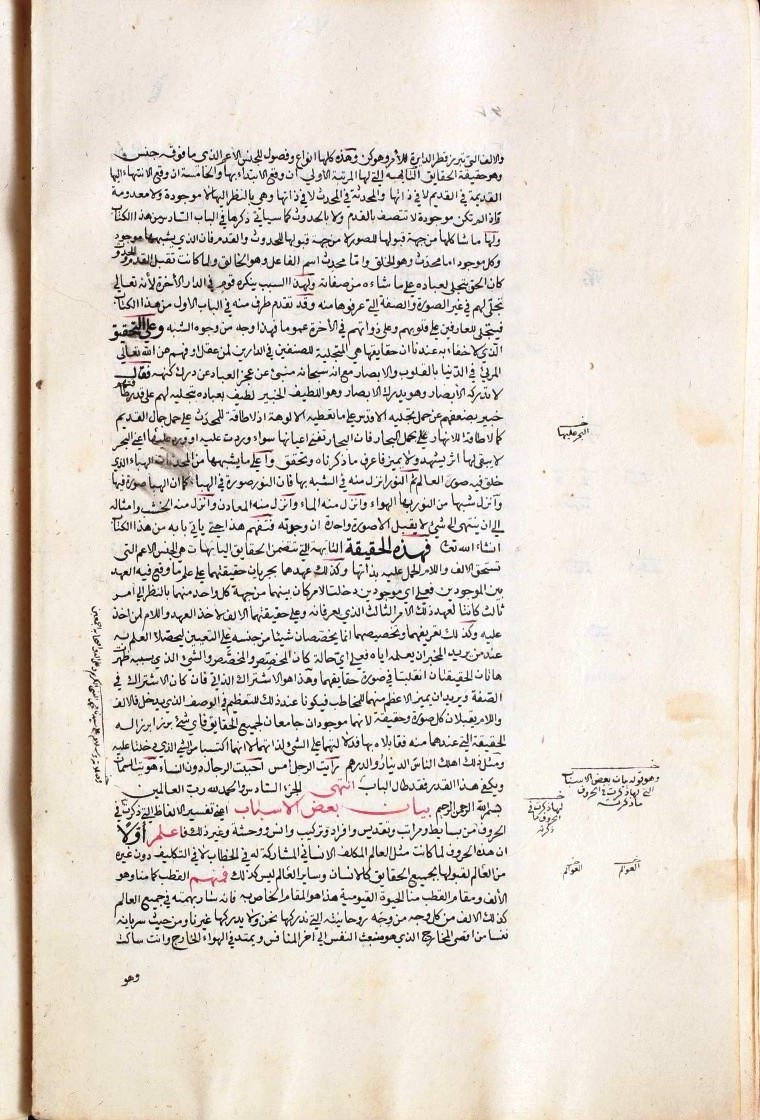 والالف التي تبرز قطر الدايرة للامر وهو كن وهذه كلها انواع وفصول للجنس الاعم الذي ما فوقه جنس
وهو حقيقة الحقايق التايهة التي لها المرتبة الاولى ان وقع الابتداء بها والخامسة ان وقع الانتهاء اليها
القديمة في القديم لا في ذاتها والمحدثة في المحدث لا في ذاتها وهي بالنظر اليها لا موجودة ولا معدومة
فاذا لم تكن موجودة لا تتصف بالقدم ولا بالحدوث كما سياتي ذكرها في الباب السادس من هذا الكتاب
ولها ما شاكلها من جهة قبولها للصور لا من جهة قبولها للحدوث والقدم فان الذي يشبهها موجود
وكل موجود اما محدث وهو الخلق واما محدث اسم الفاعل وهو الخالق ولما كانت تقبل القدم والحدوث
كان الحق يتجلى لعباده على ما شاءه من صفاته ولهذا السبب ينكره قوم في الدار الاخرة لانه تعالى
تجلى لهم في غير الصورة والصفة التي عرفوها منه وقد تقدم طرف منه في الباب الاول من هذا الكتاب
فيتجلى للعارفين على قلوبهم وعلى ذواتهم في الاخرة عموما فهذا وجه من وجوه الشبه وعلى التحقيق
الذي لا خفاء به عندنا ان حقايقها هي المتجلية للصنفين في الدارين لمن عقل او فهم من الله تعالى
المرئي في الدنيا بالقلوب والابصار مع انه سبحانه منبئ عن عجز العباد عن درك كنهه فقال
لا تدركه الابصار وهو يدرك الابصار وهو اللطيف الخبير لطيف بعباده بتجليه لهم على قدر طاقتهم
خبير بضعفهم عن حمل تجليه الاقدس على ما تعطيه الالوهة اذ لا طاقة للمحدث على حمل جمال القديم
كما لا طاقة للانهار على حمل البحار فان البحار تفني اعيانها سواء وردت عليه او ورد عليها اعني البحر
لا يبقى لها اثر يشهد ولا يميز فاعرف ما ذكرناه وتحقق واعلى ما يشبهها من المحدثات الهباء الذي
خلق فيه صور العالم ثم النور انزل منه في الشبه بها فان النور صورة في الهباء كما ان الهباء صورة فيها
وانزل شبها من النور بها الهواء وانزل منه الماء وانزل منه المعادن وانزل منه الخشب وامثاله
الى ان ينتهي الى شئ لا يقبل الا صورة واحدة ان وجدته فتفهم هذا حتى ياتي بابه من هذا الكتاب
انشاء الله تع فهذه الحقيقة التايهة التي تتضمن الحقايق التايهات هي الجنس الاعم التي
تستحق الالف واللام الحمل عليه بذاتها وكذلك عهدها بجريان حقيقتهما على علم ما وقع فيه العهد
بين الموجودين فعلى اي موجودين دخلتا لامر كان بينهما من جهة كل واحد منهما بالنظر الى امر
ثالث كانتا لعهد ذلك الامر الثالث الذي يعرفانه وعلى حقيقتهما الالف لاخذ العهد واللام لمن اخذ
عليه وكذلك تعريفهما وتخصيصهما انما يخصصان شيئا من جنسه على التعيين ليحصل العلم به
عند من يريد المخبر ان يعلمه اياه فعلى اي حالة كان المخصص والمخصص والشئ الذي بسببه ظهرت
هاتان الحقيقتان انقلبتا في صورة حقايقهما وهذا هو الاشتراك الذاتي فان كان الاشتراك في
الصفة ويريد ان يميز الاعظم منهما للمخاطب فيكونا عند ذلك للتعظيم في الوصف الذي يدخل فالالف
واللام يقبلان كل صورة وحقيقة لانهما موجودان جامعان لجميع الحقايق فاي شئ برز ابرزا له
الحقيقة التي عندهما منه فقابلاه بها فدلالتهما على الشئ لذاتهما لا انهما اكتسبا من الشئ الذي دخلتا عليه
ومثل ذلك اهلك الناس الدينار والدرهم رايت الرجل امس احببت الرجال دون النساء هويت السمان
ويكفي هذا القدر فقد طال الباب انتهى الجزء السادس والحمد لله رب العالمين
بسم الله الرحمن الرحيم بيان بعض الاسباب اعني تفسير الالفاظ التي ذكرت في
الحروف من بسايط ومراتب وتقديس وافراد وتركيب وانس ووحشة وغير ذلك فاعلم اولا
ان هذه الحروف لما كانت مثل العالم المكلف الانساني المشاركة له في الخطاب لا في التكليف دون غيره
من العالم لقبولها لجميع الحقايق كالانسان وساير العالم ليس كذلك فمنهم القطب كما منا وهو
الالف ومقام القطب منا الحيوة القيومية هذا هو المقام الخاص به فانه سار بهمته في جميع العالم
كذلك الالف من كل وجه من وجه روحانيته التي ندركها نحن ولا يدركها غيرنا ومن حيث سريانه
نفسا من اقصى المخارج الذي هو منبعث النفس الى اخر المنافس ويمتد في الهواء الخارج وانت ساكت
وهو
البحر عليها
وهو قوله بيان بعض الاسباب
التي لها ذكرت في الحروف
ما ذكرت
لها ذكرت في
الحروف ما
ذكرت
العوالم
العوالم